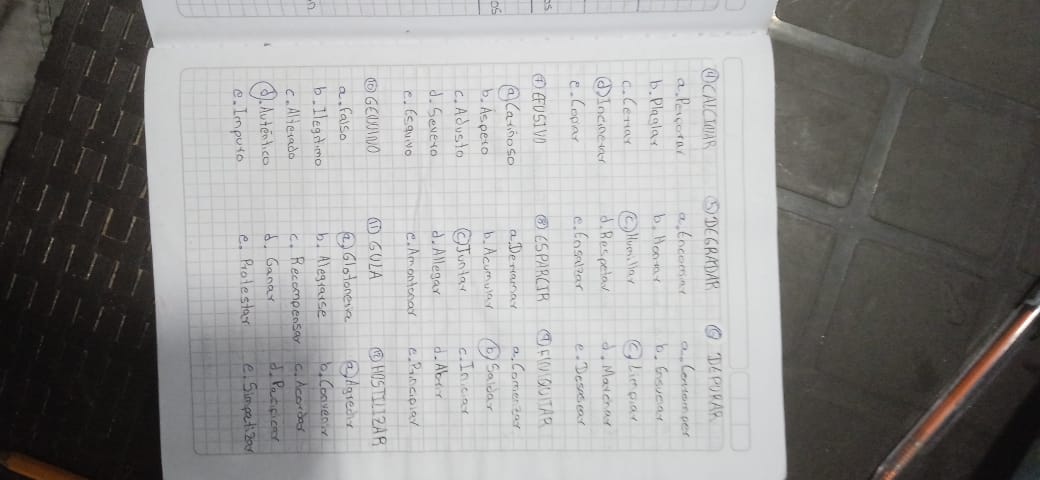 ④ CALCINAR
a. Perorar
b. Plagiar
c. Cenar
ⓓ Incinerar
e. Copar
⑤ DEGRADAR
a. Encomiar
b. Honrar
ⓒ Humillar
d. Respetar
e. Ensalzar
⑥ DEPURAR
a. Corromper
b. Ensuciar
ⓒ Limpiar
d. Macerar
e. Desasear
⑦ EFUSIVO
ⓐ Cariñoso
b. Aspero
c. Adusto
d. Severo
e. Esquivo
⑧ ESPARCIR
a. Derramar
b. Acumular
ⓒ Juntar
d. Allegar
e. Amontonar
⑨ FINIQUITAR
a. Comenzar
ⓑ Saldar
c. Iniciar
d. Abrir
e. Principiar
⑩ GENUINO
a. Falso
b. Ilegitimo
c. Alterado
ⓓ. Auténtico
e. Impuro
⑪ GULA
ⓐ Glotoneria
b. Alegrarse
c. Recompensar
d. Ganar
e. Protestar
⑫ HOSTILIZAR
ⓐ Agredir
b. Convenir
c. Acordar
d. Pacificar
e. Simpatizar